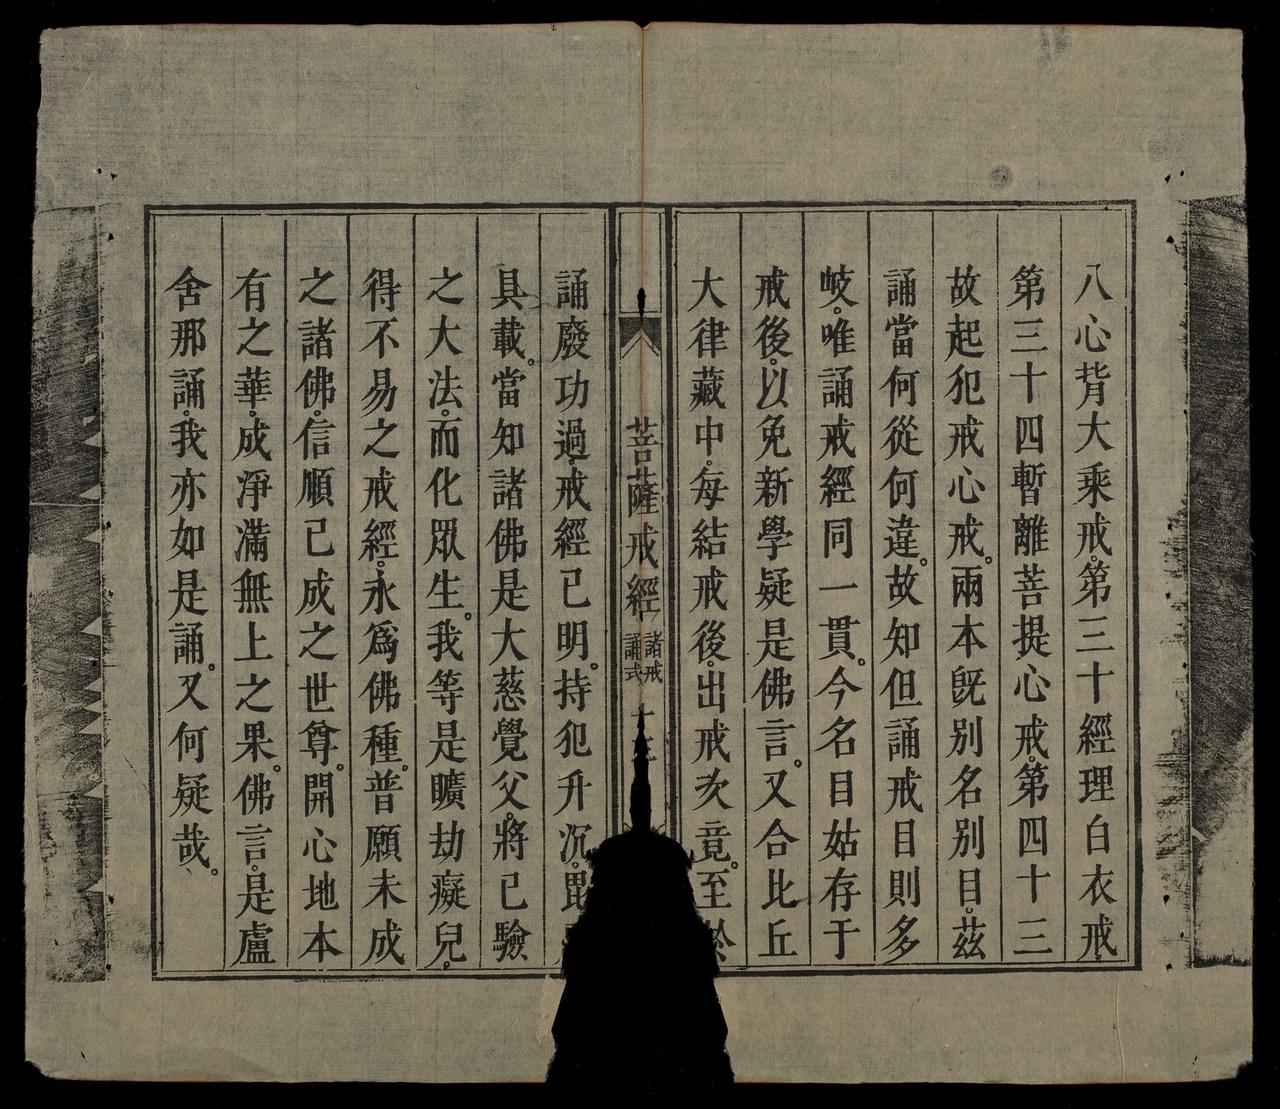 八心背大乘戒。第三十經理白衣戒。
第三十四暫離菩提心戒。第四十三
故起犯戒心戒。兩本旣別名別目。茲
誦當何從何違。故知但誦戒目則多
岐。唯誦戒經同一貫。今名目姑存于
戒後。以免新學疑是佛言。又合比丘
大律藏中。每結戒後。出戒次竟。至於
菩薩戒經 諸戒誦式
誦廢功過。戒經已明。持犯升沉。毘
具載。當知諸佛是大慈覺父。將已驗
之大法。而化眾生。我等是曠劫癡兒。
得不易之戒經。永爲佛種。普願未成
之諸佛。信順已成之世尊。開心地本
有之華。成淨滿無上之果。佛言。是盧
舍那誦。我亦如是誦。又何疑哉。